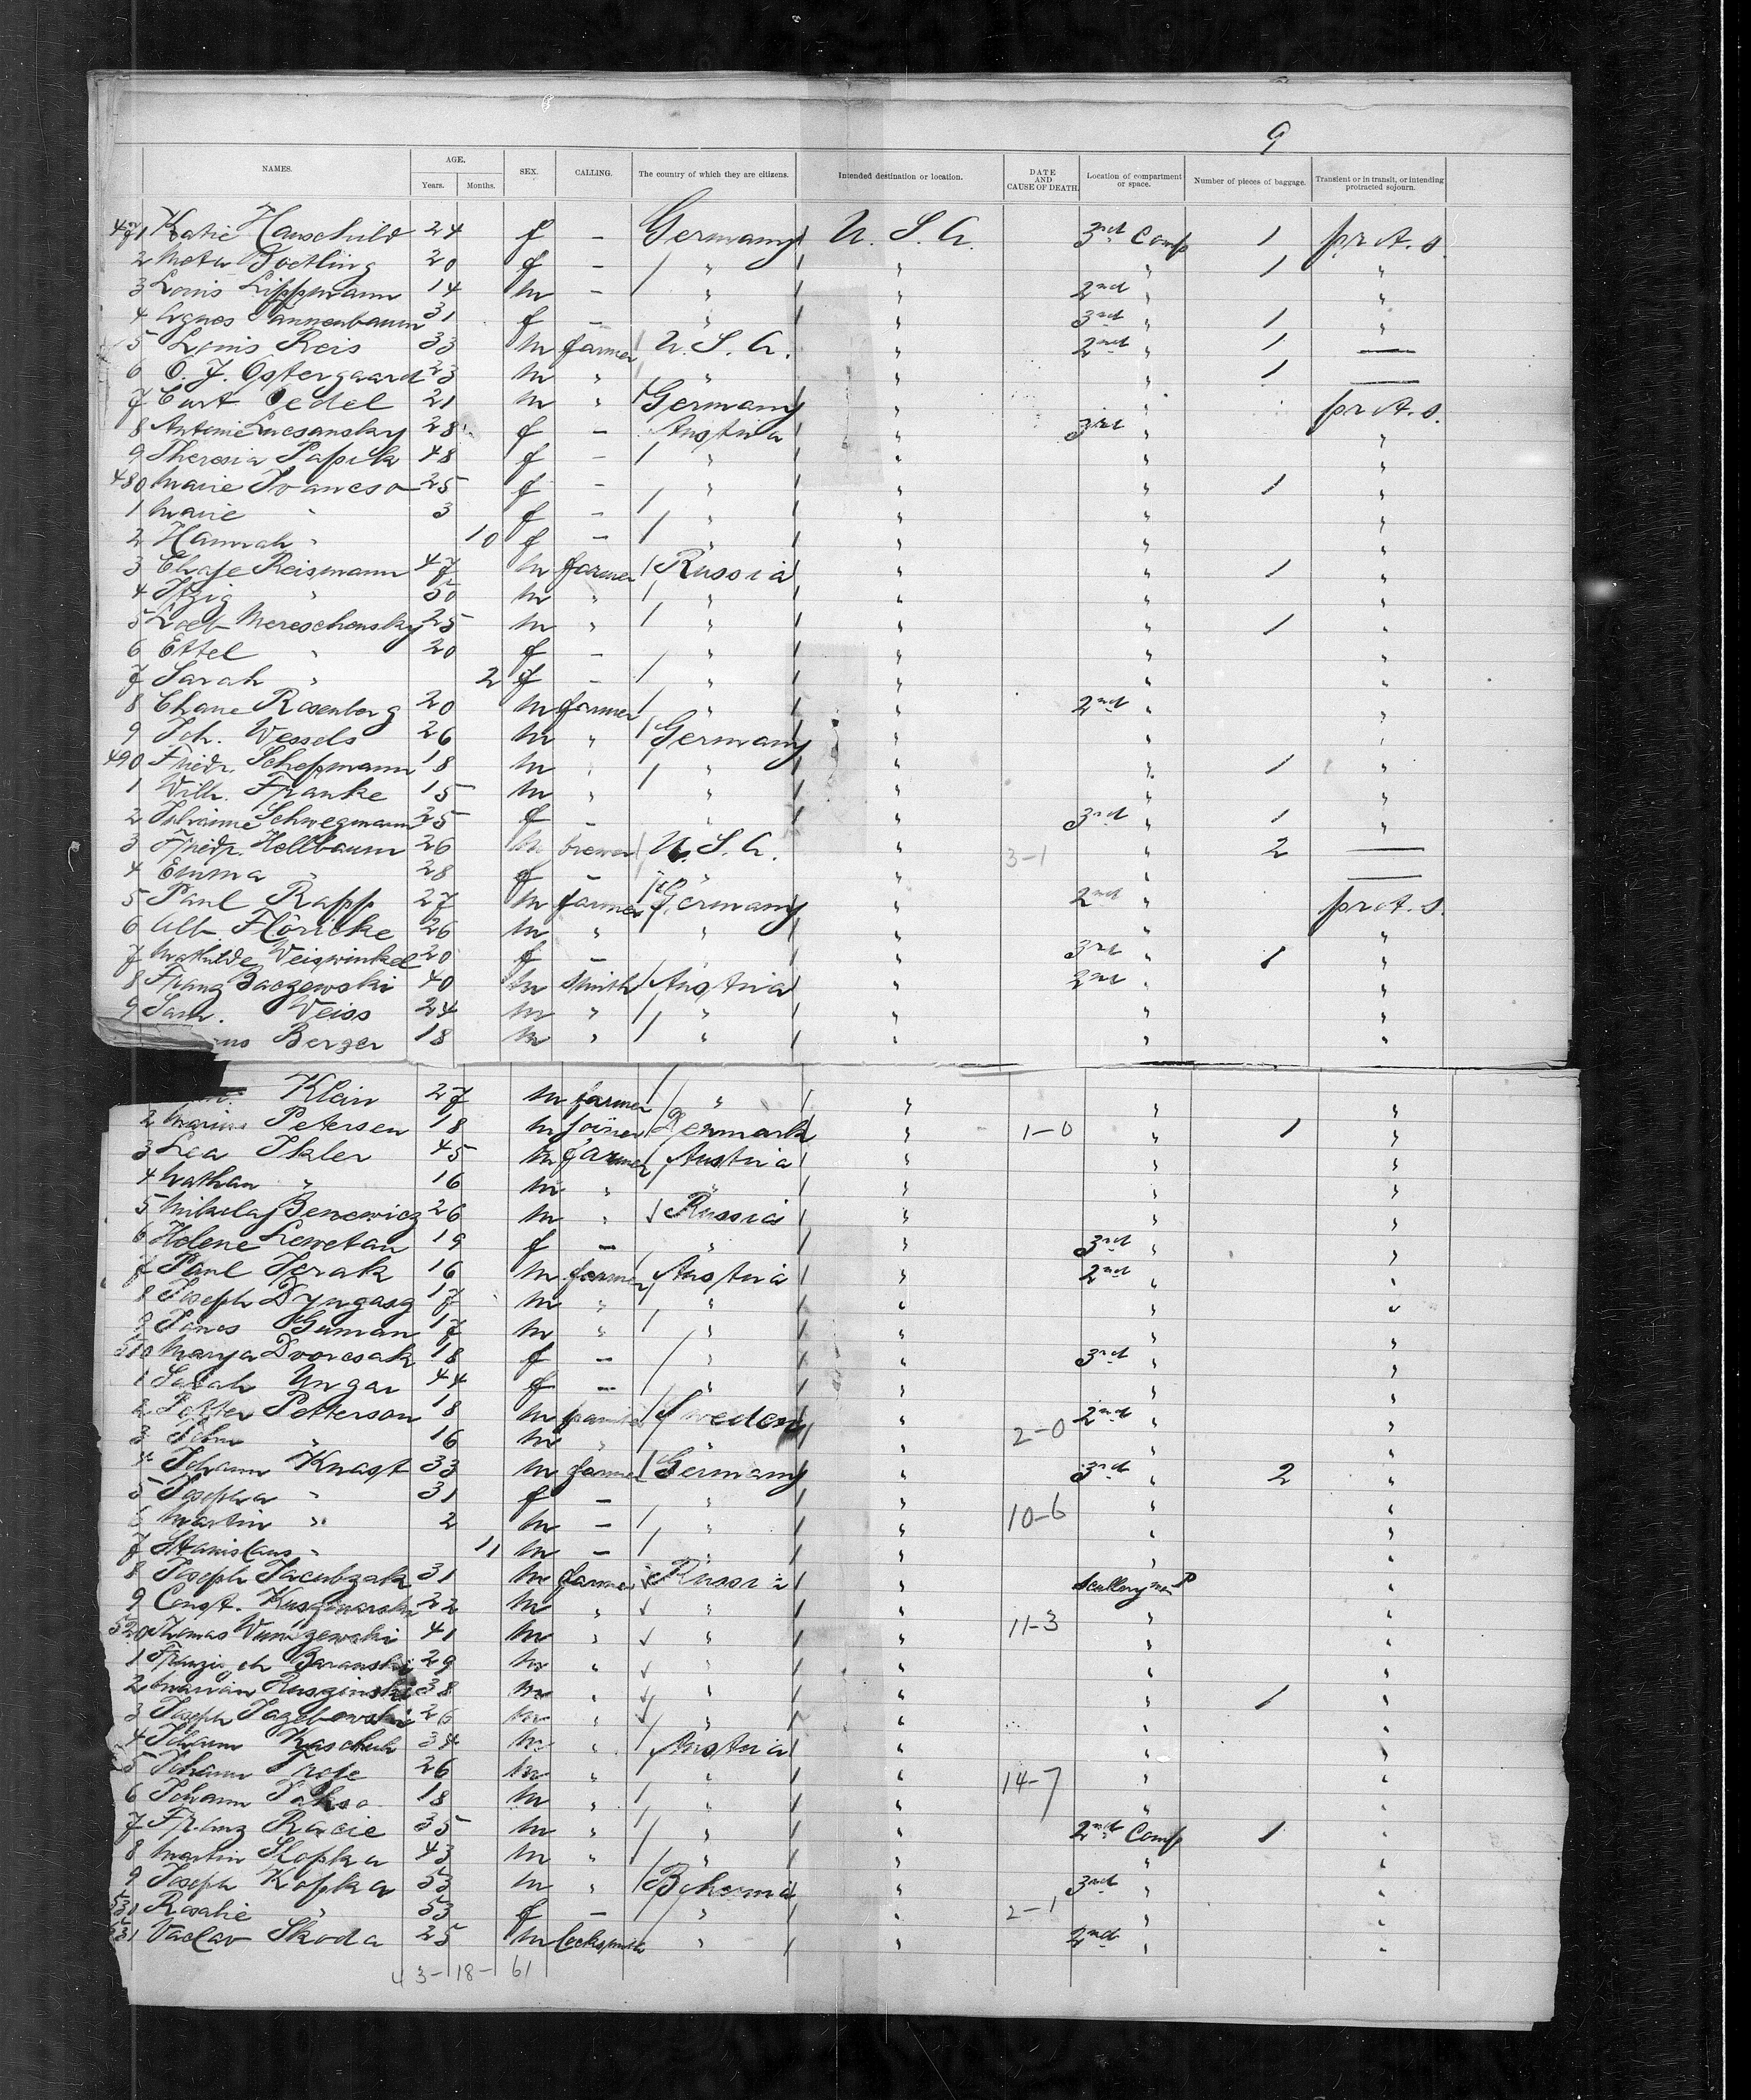 9
NAMES. AGE. Years. Months. SEX. CALLING. The country of which they are citizens. Intended destination or location. DATE AND CAUSE OF DEATH. Location of compartment or space. Number of pieces of baggage. Transient or in transit, or intending protracted sojourn.
471 Katie Hauschild 24 f — Germany U. S. A. 3rd Comp 1 pr A. s.
2 Meta 20 f — " " " 1 "
3 Louis Lippmann 14 m — " " 2nd " "
4 Agnes Tannenbaum 31 f — " " 3rd " 1 "
5 Louis Reis 33 m farmer U. S. A. " 2nd " 1 —
6 O. J. Ostergaard 23 m " " " " 1 —
7 Curt Oedel 21 m " Germany " " pr A. s.
8 Antonie 28 f — Austria " 3rd " "
9 Theresia Papik 48 f — " " " "
480 Marie 25 f — " " " 1 "
1 Marie " 3 f — " " " "
2 Hannah " 10 f — " " " "
3 Reismann 47 m farmer Russia " " 1 "
4 Itzig " 50 m " " " " "
5 Loeb Mereschensky 25 m " " " " 1 "
6 Ettel " 20 f — " " " "
7 Sarah " 2 f — " " " "
8 Chane Rosenberg 20 m farmer " " 2nd " "
9 Joh. Wessels 26 m " Germany " " "
490 Friedr. Schepmann 18 m " " " " 1 "
1 Wilh. Franke 15 m " " " " "
2 Schwegmann 25 f — " " 3rd " 1 "
3 Friedr. Hellbaum 26 m brewer U. S. A. " 3-1 " 2 —
4 Emma " 28 f — " " " —
5 Paul Rapp 27 m farmer Germany " 2nd " pr A. s.
6 Alb. Flöricke 26 m " " " "
7 Mathilde Veiswinkel 20 f — " " 3rd " 1 "
8 Franz Baczewski 40 m Smith Austria " 2nd " "
9 Sam. Weiss 24 m " " " " "
Berger 18 m " " " " "
Klein 27 m farmer " " " "
2 Marius Petersen 18 m joiner Denmark " 1-0 " 1 "
3 Lea Ikler 45 m farmer Austria " " "
4 Nathan " 16 m " " " " "
5 Mikolaj Benewicz 26 m " Russia " " "
6 Helene Lewetan 19 f — " " 3rd " "
7 Paul 16 m farmer Austria " 2nd " "
8 Joseph Dyngasz 17 m " " " " "
9 Janos Guman 17 m " " " " "
510 Marya Dvorcsak 18 f — " " 3rd " "
1 Sarah Ungar 44 f — " " " "
2 Petter Petterson 18 m Sweden " 2nd " "
3 John " 16 m " " " 2-0 " "
4 Johann Knast 33 m farmer Germany " 3rd " 2 "
5 Josepha " 31 f — " " " "
6 Martin " 2 m — " " 10-6 " "
7 Stanislaus " 11 m — " " " "
8 Joseph Jacubzak 31 m farmer Russia " "
9 Const. 22 m " " " " "
520 Thomas 41 m " " " 11-3 " "
1 Baranski 29 m " " " " "
2 Marian Rusginski 38 m " " " " 1 "
3 Joseph 26 m " " " " "
4 Johann Kaschuh 34 m " Austria " " "
5 Johann 26 m " " " 14-7 " "
6 Johann 18 m " " " " "
7 Franz Racie 35 m " " " 2nd Comp 1 "
8 Martin Skopka 43 m " " " " "
9 Joseph Kopka 53 m " Bohemia " 3rd " "
530 Rosalie " 53 f — " " 2-1 " "
531 Vaclav Skoda 25 m locksmith " " 2nd " "
43-18-61